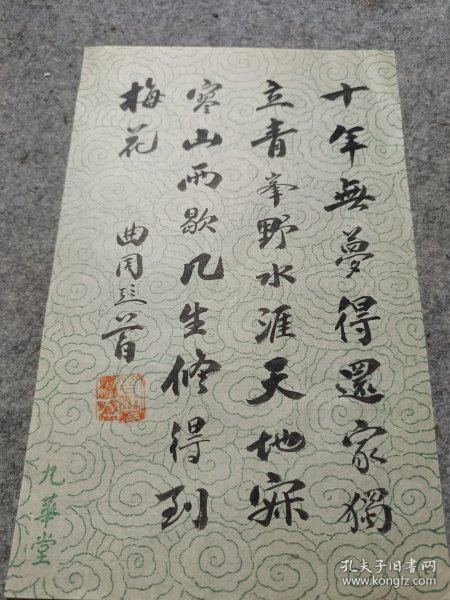 十年無夢得還家獨
立青峯野水涯天地寐
寥山雨歇几生修得到
梅花
曲周
九華堂
孔夫子旧书网
www.kongfz.com